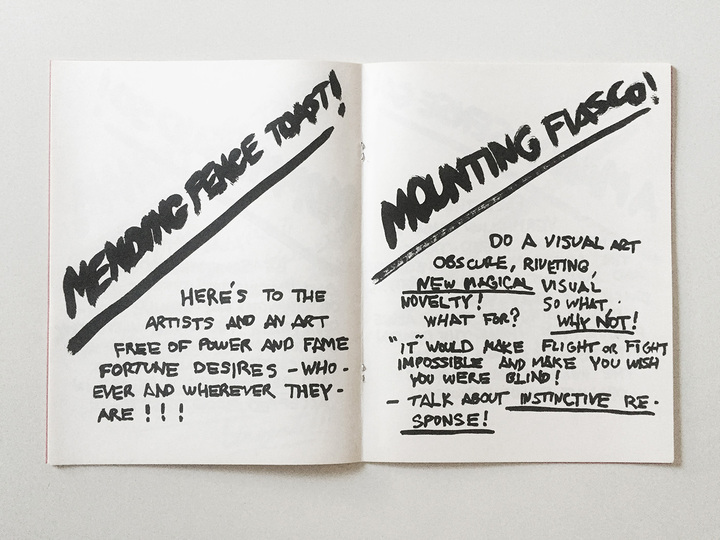 MENDING FENCE TOAST!
HERE'S TO THE
ARTISTS AND AN ART
FREE OF POWER AND FAME
FORTUNE DESIRES - WHO -
EVER AND WHEREVER THEY -
ARE !!!
MOUNTING FIASCO!
DO A VISUAL ART
OBSCURE, RIVETING,
NEW MAGICAL VISUAL
NOVELTY! SO WHAT,
WHAT FOR? WHY NOT!
"IT" WOULD MAKE FLIGHT OR FIGHT
IMPOSSIBLE AND MAKE YOU WISH
YOU WERE BLIND!
- TALK ABOUT INSTINCTIVE RE-
SPONSE!